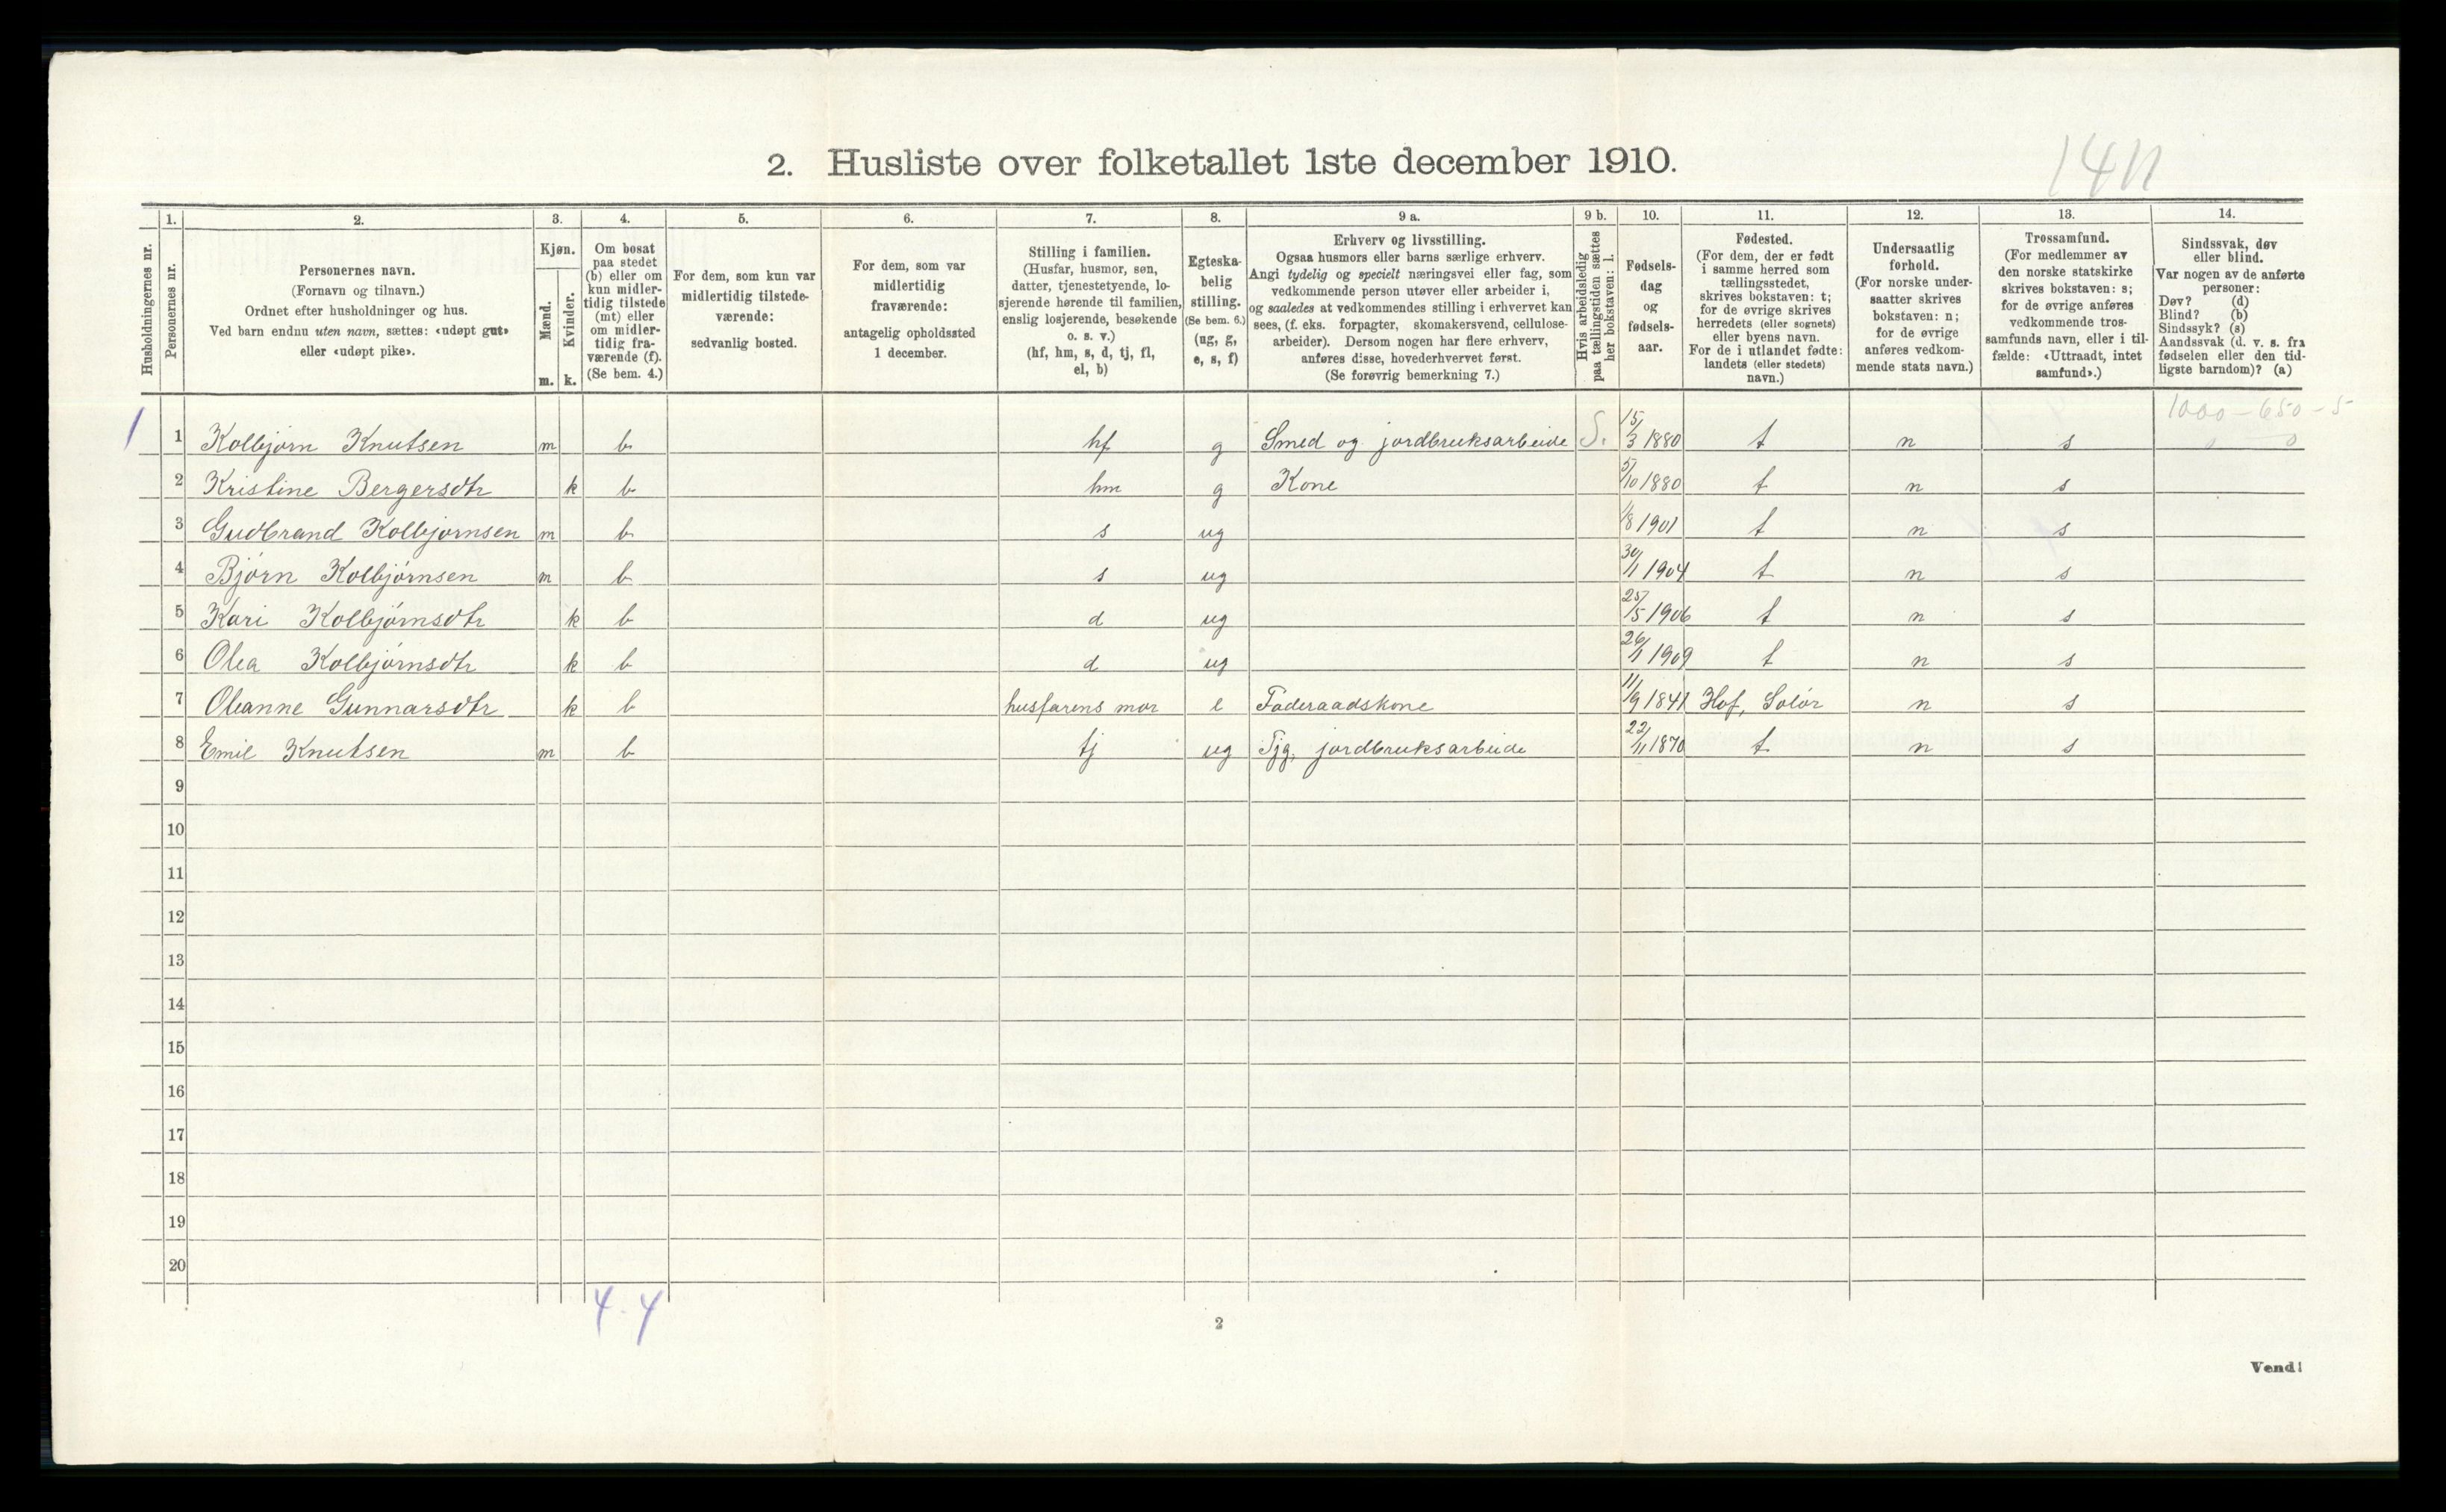 14n
2. Husliste over folketallet 1ste december 1910.
Husholdningernes nr.
1. Personernes nr.
2. Personernes navn.
(Fornavn og tilnavn.)
Ordnet efter husholdninger og hus.
Ved barn endnu uten navn, sættes: «udøpt gut»
eller «udøpt pike».
3. Kjøn.
Mænd. m.
Kvinder. k.
4. Om bosat
paa stedet
(b) eller om
kun midler-
tidig tilstede
(mt) eller
om midler-
tidig fra-
værende (f).
(Se bem. 4.)
5. For dem, som kun var
midlertidig tilstede-
værende:
sedvanlig bosted.
6. For dem, som var
midlertidig
fraværende:
antagelig opholdssted
1 december.
7. Stilling i familien.
(Husfar, husmor, søn,
datter, tjenestetyende, lo-
sjerende hørende til familien,
enslig losjerende, besøkende
o. s. v.)
(hf, hm, s, d, tj, fl,
el, b)
8. Egteska-
belig
stilling.
(Se bem. 6.)
(ug, g,
e, s, f)
9 a. Erhverv og livsstilling.
Ogsaa husmors eller barns særlige erhverv.
Angi tydelig og specielt næringsvei eller fag, som
vedkommende person utøver eller arbeider i,
og saaledes at vedkommendes stilling i erhvervet kan
sees, (f. eks. forpagter, skomakersvend, cellulose-
arbeider). Dersom nogen har flere erhverv,
anføres disse, hovederhvervet først.
(Se forøvrig bemerkning 7.)
9 b. Hvis arbeidsledig
paa tællingstiden sættes
her bokstaven: l.
10. Fødsels-
dag
og
fødsels-
aar.
11. Fødested.
(For dem, der er født
i samme herred som
tællingsstedet,
skrives bokstaven: t;
for de øvrige skrives
herredets (eller sognets)
eller byens navn.
For de i utlandet fødte:
landets (eller stedets)
navn.)
12. Undersaatlig
forhold.
(For norske under-
saatter skrives
bokstaven: n;
for de øvrige
anføres vedkom-
mende stats navn.)
13. Trossamfund.
(For medlemmer av
den norske statskirke
skrives bokstaven: s;
for de øvrige anføres
vedkommende tros-
samfunds navn, eller i til-
fælde: «Uttraadt, intet
samfund».)
14. Sindssvak, døv
eller blind.
Var nogen av de anførte
personer:
Døv? (d)
Blind? (b)
Sindssyk? (s)
Aandssvak (d. v. s. fra
fødselen eller den tid-
ligste barndom)? (a)
1000 - 650 - 5
1 1 Kolbjørn Knutsen m b hf g Smed og jordbruksarbeide S. 15/3 1880 t n s
2 Kristine Bergersdtr k b hm g Kone 5/10 1880 t n s
3 Gudbrand Kolbjørnsen m b s ug 1/8 1901 t n s
4 Bjørn Kolbjørnsen m b s ug 30/1 1904 t n s
5 Kari Kolbjørnsdtr k b d ug 25/5 1906 t n s
6 Olea Kolbjørnsdtr k b d ug 26/1 1909 t n s
7 Oleanne Gunnarsdtr k b husfarens mor e Føderaadskone 11/9 1841 Hof, Solør n s
8 Emil Knutsen m b tj ug Tjg, jordbruksarbeide 22/11 1870 t n s
9
10
11
12
13
14
15
16
17
18
19
20
4 - 4
2
Vend!